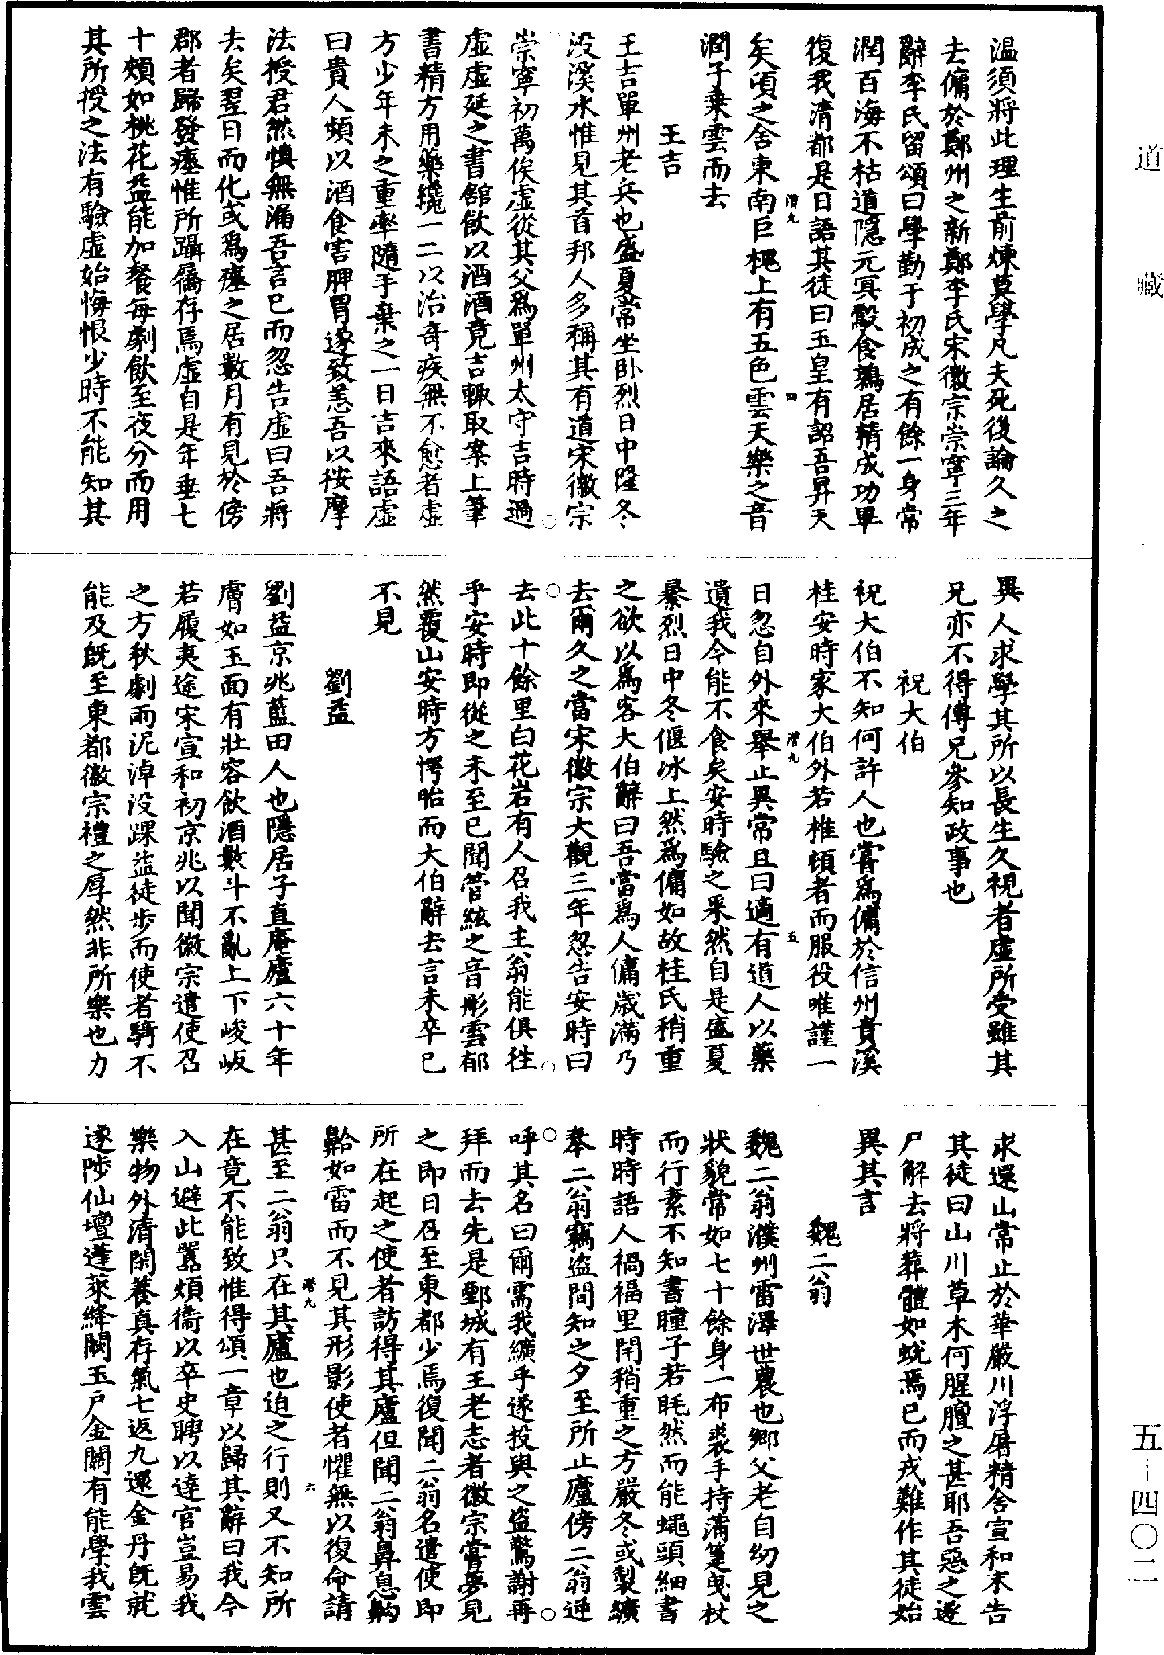 道藏
溫須將此理生前煉莫學凡夫死後論久之
去傭於鄭州之新鄭李氏宋徽宗崇寧三年
辭李氏留頌曰學勤于初成之有餘一身常
潤百海不枯道隱元冥鷇食鶉居精成功畢
復我清都是日語其徒曰玉皇有詔吾昇天
矣頃之舍東南巨槐上有五色雲天樂之音
潤子乘雲而去
王吉
王吉單州老兵也盛夏常坐卧烈日中隆冬
没溪水惟見其首邦人多稱其有道宋徽宗
崇寧初萬俟虛從其父爲單州太守吉時過
虛虛延之書館飲以酒酒竟吉輒取案上筆
書精方用藥纔一二以治奇疾無不愈者虛
方少年未之重率隨手棄之一日吉來語虛
曰貴人頻以酒食害脾胃遂致恙吾以按摩
法授君然慎無漏吾言已而忽告虛曰吾將
去矣翌日而化或爲瘞之居數月有見於傍
郡者歸發瘞惟所躡屩存焉虛自是年垂七
十頰如桃花益能加餐每劇飲至夜分而用
其所授之法有驗虛始悔恨少時不能知其
異人求學其所以長生久視者虛所受雖其
兄亦不得傳兄參知政事也
祝大伯
祝大伯不知何許人也嘗爲傭於信州貴溪
桂安時家大伯外若椎頓者而服役唯謹一
日忽自外來舉止異常且曰適有道人以藥
遺我今能不食矣安時驗之果然自是盛夏
暴烈日中冬偃冰上然爲傭如故桂氏稍重
之欲以爲客大伯辭曰吾當爲人傭歲滿乃
去爾久之當宋徽宗大觀三年忽告安時曰
去此十餘里白花岩有人召我主翁能俱往
乎安時即從之未至已聞管絃之音彤雲郁
然覆山安時方愕眙而大伯辭去言未卒已
不見
劉益
劉益京兆藍田人也隱居子直庵廬六十年
膚如玉面有壯容飲酒數斗不亂上下峻坂
若履夷途宋宣和初京兆以聞徽宗遣使召
之方秋劇雨泥淖没踝益徒步而使者騎不
能及旣至東都徽宗禮之厚然非所樂也力
求還山常止於華嚴川浮屠精舍宣和末告
其徒曰山川草木何腥膻之甚耶吾惡之遂
尸解去將葬體如蛻焉已而戎難作其徒始
異其言
魏二翁
魏二翁濮州雷澤世農也鄉父老自幼見之
狀貌常如七十餘身一布裘手持蒲箑曳杖
而行素不知書瞳子若眊然而能蠅頭細書
時時語人禍福里閈稍重之方嚴冬或製纊
奉二翁竊盜間知之夕至所止廬傍二翁逆
呼其名曰爾需我纊乎遂投與之盜驚謝再
拜而去先是鄄城有王老志者徽宗嘗夢見
之即日召至東都少焉復聞二翁名遣使即
所在起之使者訪得其廬但聞二翁鼻息齁
鼾如雷而不見其形影使者懼無以復命請
甚至二翁只在其廬也迫之行則又不知所
在竟不能致惟得頌一章以歸其辭曰我今
入山避此囂煩衛以卒史聘以達官豈易我
樂物外清閑養真存氣七返九還金丹旣就
遂陟仙壇蓬萊絳闕玉戶金關有能學我雲
潛九
四
潛九
五
潛九
六
五-四〇二